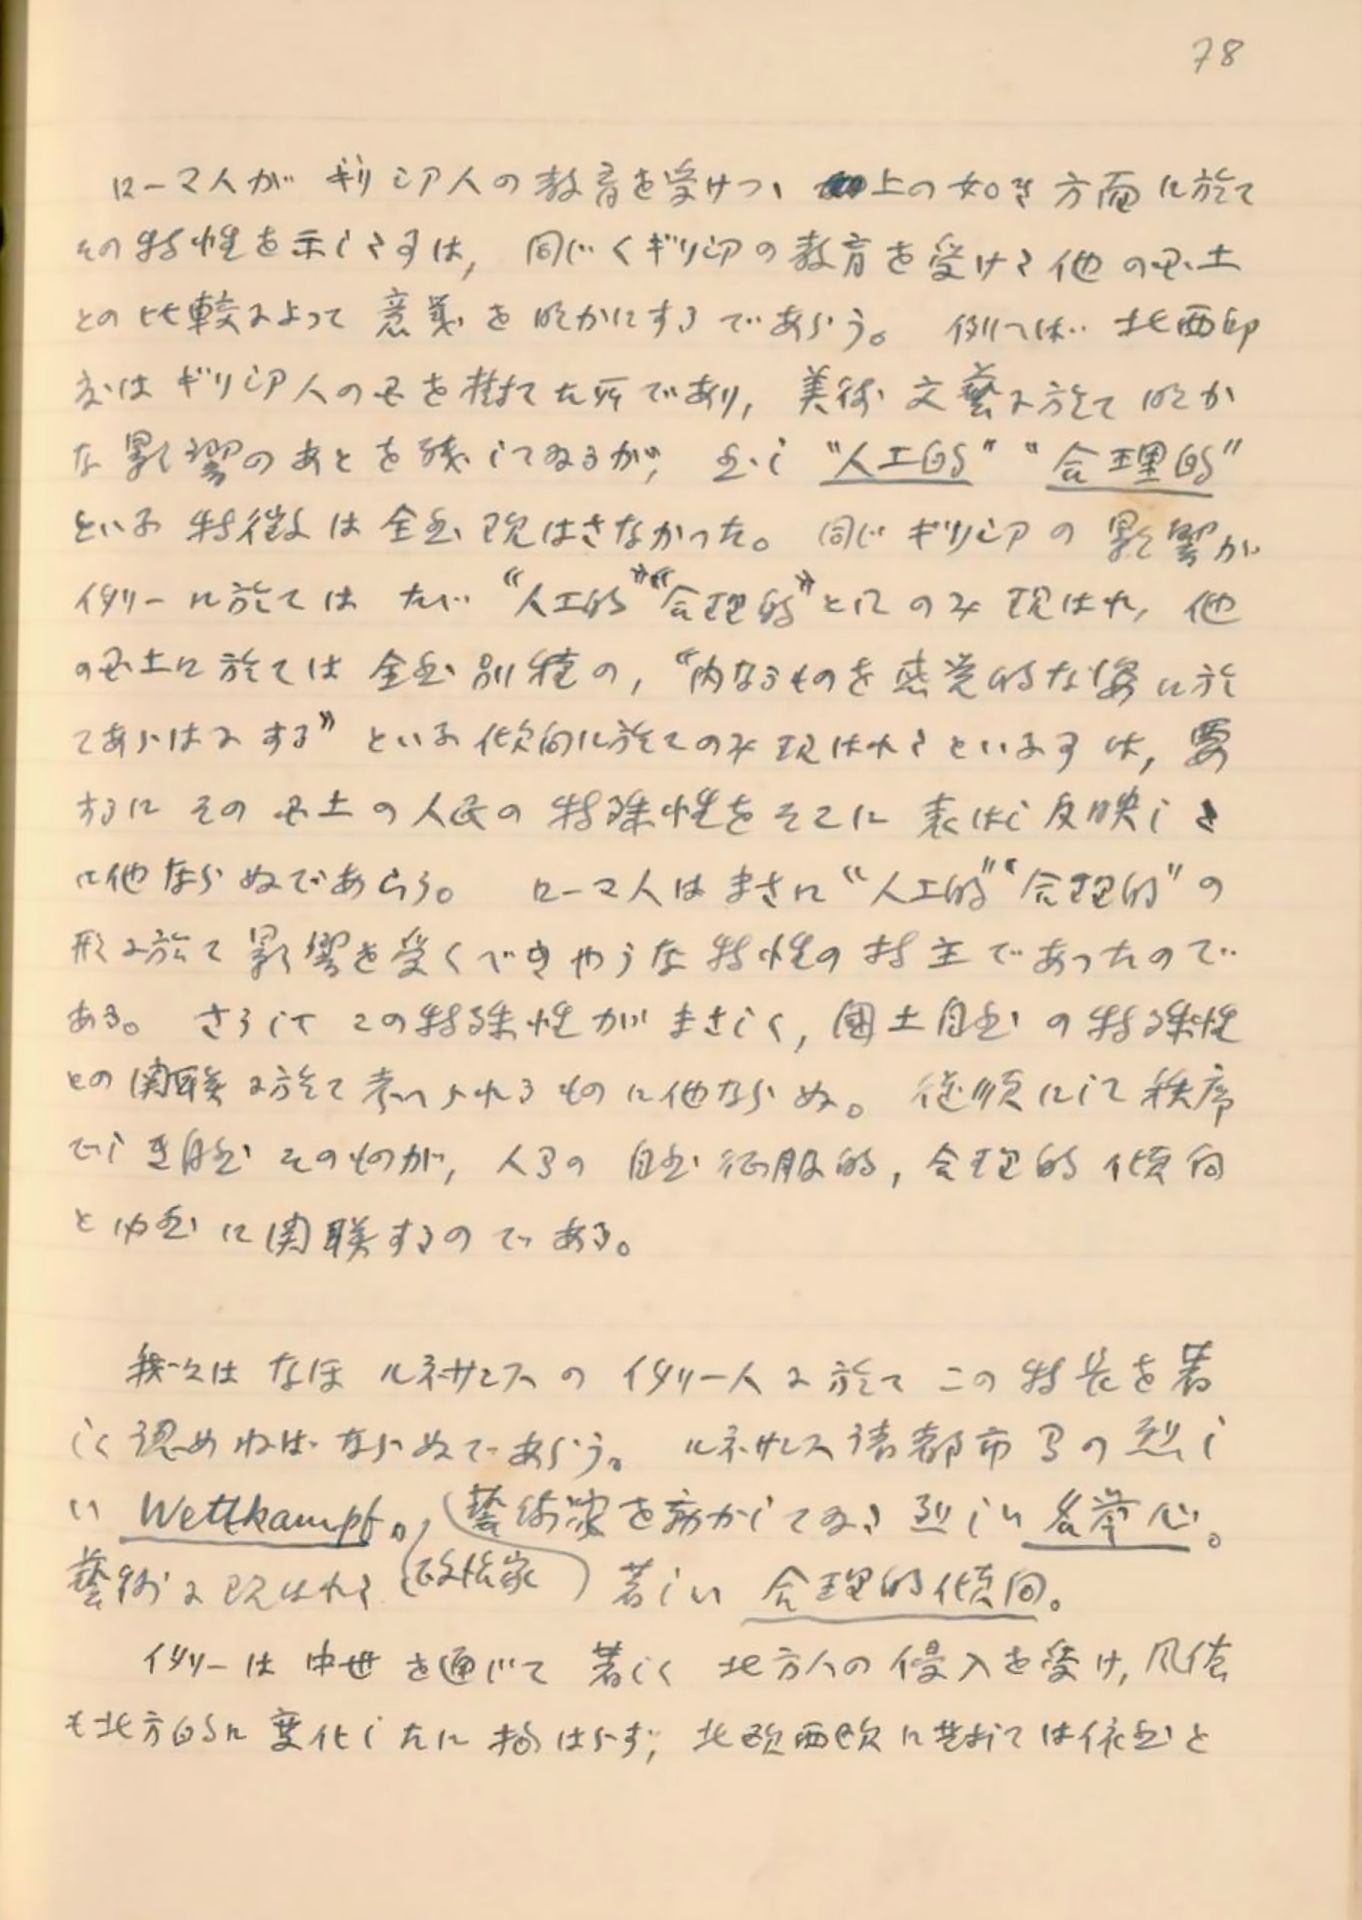 78
ローマ人が ギリシア人の教育を受けつゝ 上の如き方面に於て
その特性を示した事は, 同じくギリシアの教育を受けた他の国土
との比較によって 意義を明かにするであらう。 例へば 北西印
度は ギリシア人の国を樹てた所であり, 美術 文藝に於て 明か
な影響のあとを残してゐるが, 然し “人工的” “合理的”
といふ 特徴は 全然現はさなかった。 同じ ギリシアの 影響が
イタリーに於ては たゞ “人工的”“合理的”としてのみ 現はれ, 他
の国土に於ては 全然別種の, “内なるものを感覚的な姿に於
てあらはにする” といふ傾向に於てのみ現はれたといふ事は, 要
するに その国土の人民の 特殊性をそこに 表はし反映した
に他ならぬであらう。 ローマ人はまさに “人工的”“合理的”の
形に於て 影響を受くべきやうな 特性の持主であったので
ある。 さうして この特殊性が まさしく, 國土自然の特殊性
との関聯に於て考へられるものに他ならぬ。 従順にして秩序
正しき自然そのものが, 人間の 自然征服的, 合理的傾向
と必然に関聯するのである。
我々は なほ ルネサンスの イタリー人に於て この特長を著
しく認めねばならぬであらう。 ルネサンス諸都市間の烈し
い Wettkampf。, 藝術家を動かしてゐた 烈しい 名誉心。
藝術に現はれた (政治家) 著しい 合理的傾向。
イタリーは 中世を通じて 著しく 北方人の侵入を受け, 風俗
も北方的に変化したに拘はらず, 北欧西欧に比しては依然と